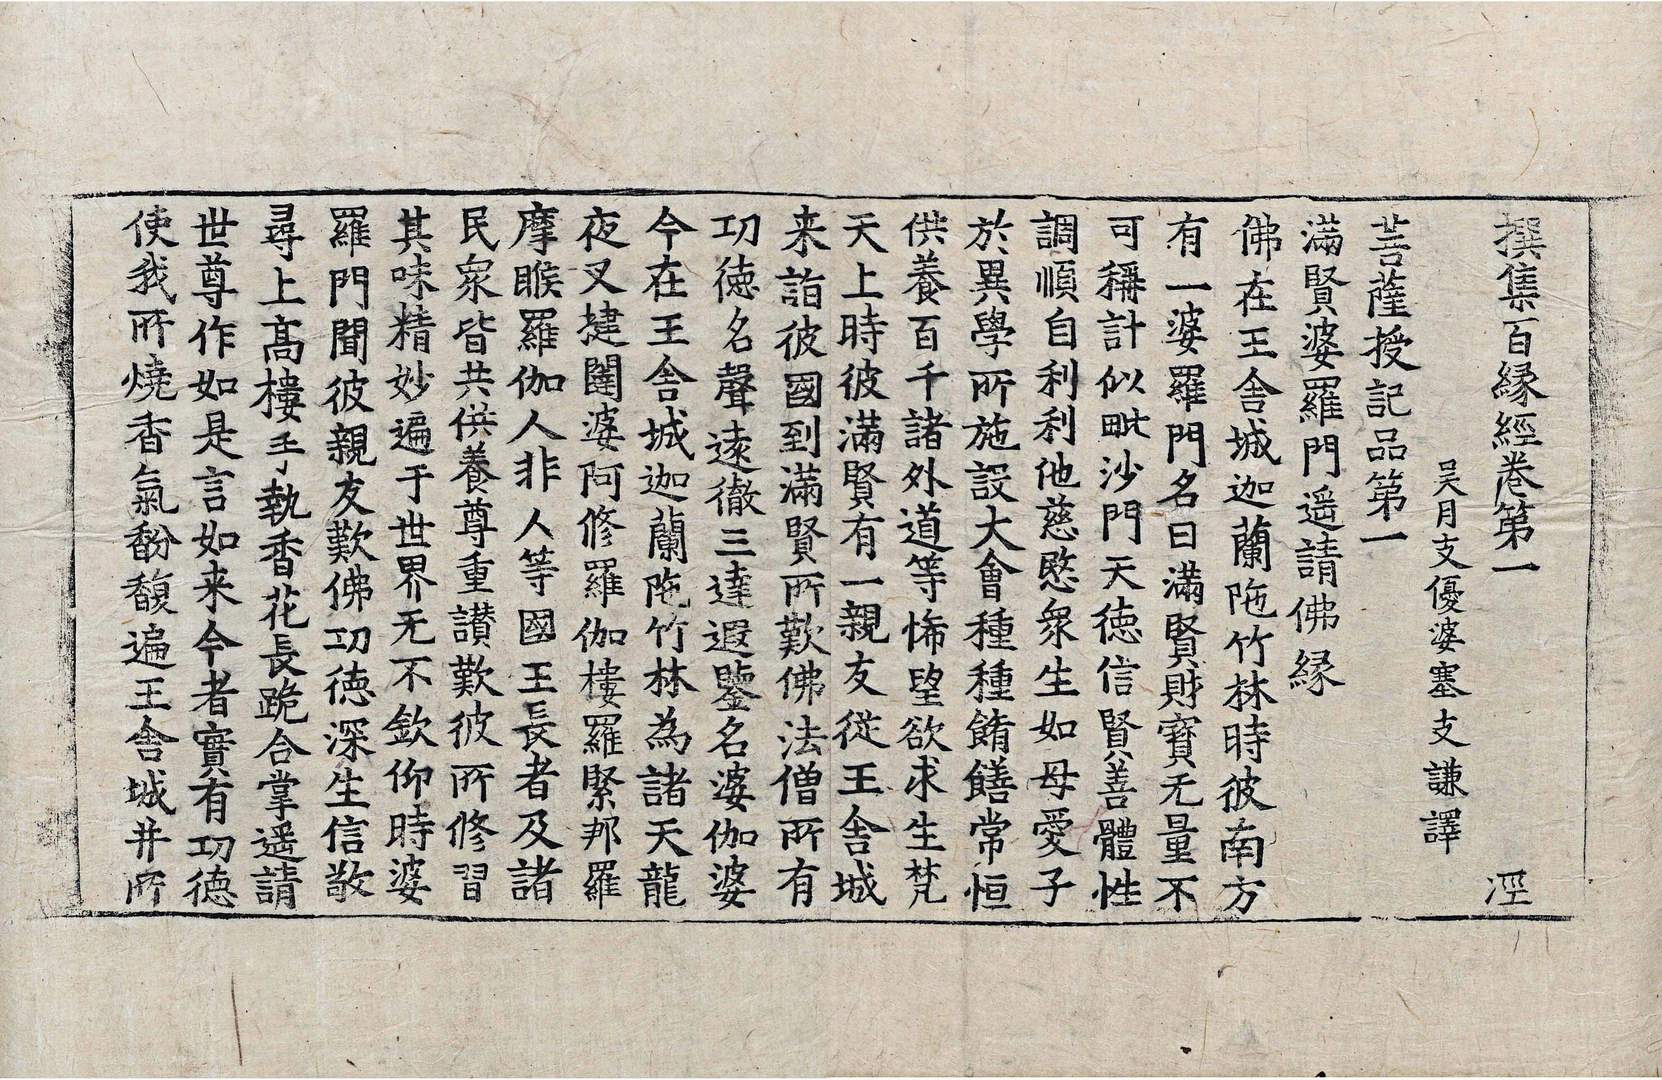 撰集百縁經卷第一 淫
吴月支優婆塞支謙譯
菩薩授記品第一
滿賢婆羅門遥請佛縁
佛在王舍城迦蘭陁竹林時彼南方
有一婆羅門名曰滿賢財寶无量不
可稱計似毗沙門天徳信賢善體性
調順自利利他慈愍衆生如母愛子
於異學所施設大會種種餚饍常恒
供養百千諸外道等悕望欲求生梵
天上時彼滿賢有一親友従王舍城
来詣彼國到滿賢所歎佛法僧所有
功徳名聲逺徹三達遐鑒名婆伽婆
今在王舍城迦蘭陁竹林為諸天龍
夜叉揵闥婆阿修羅伽樓羅緊那羅
摩睺羅伽人非人等國王長者及諸
民衆皆共供養尊重讃歎彼所修習
其味精妙遍于世界无不欽仰時婆
羅門聞彼親友歎佛功徳深生信敬
尋上髙樓手執香花長跪合掌遥請
世尊作如是言如来今者實有功徳
使我所燒香氣酚馥遍王舍城并所